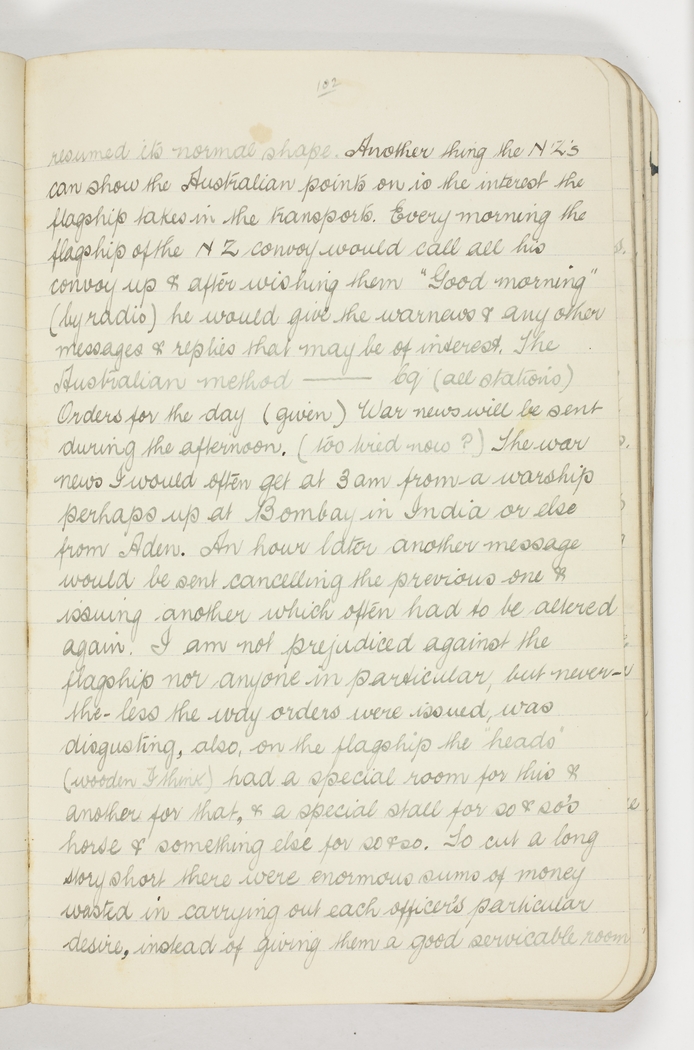 102
resumed its normal shape. Another thing the N'Z's
can show the Australian points on is the interest the
flagship takes in the transports. Every morning the
flagship of the N Z convoy would call all his
convoy up & after wishing them "Good morning"
(by radio) he would give the warnews & any other
messages & replies that may be of interest. The
Australian method —— (all station's)
Orders for the day (given) War news will be sent
during the afternoon. (too tired now?) The war
news I would often get at 3am from a warship
perhaps up at Bombay in India or else
from Aden. An hour later another message
would be sent cancelling the previous one &
issuing another which often had to be altered
again. I am not prejudiced against the
flagship nor anyone in particular, but never-
the-less the way orders were issued, was
disgusting, also, on the flagship the "heads"
(wooden I think) had a special room for this &
another for that, & a special stall for so & so's
horse & something else for so & so. To cut a long
story short there were enormous sums of money
wasted in carrying out each officer's particular
desire, instead of giving them a good servicable room